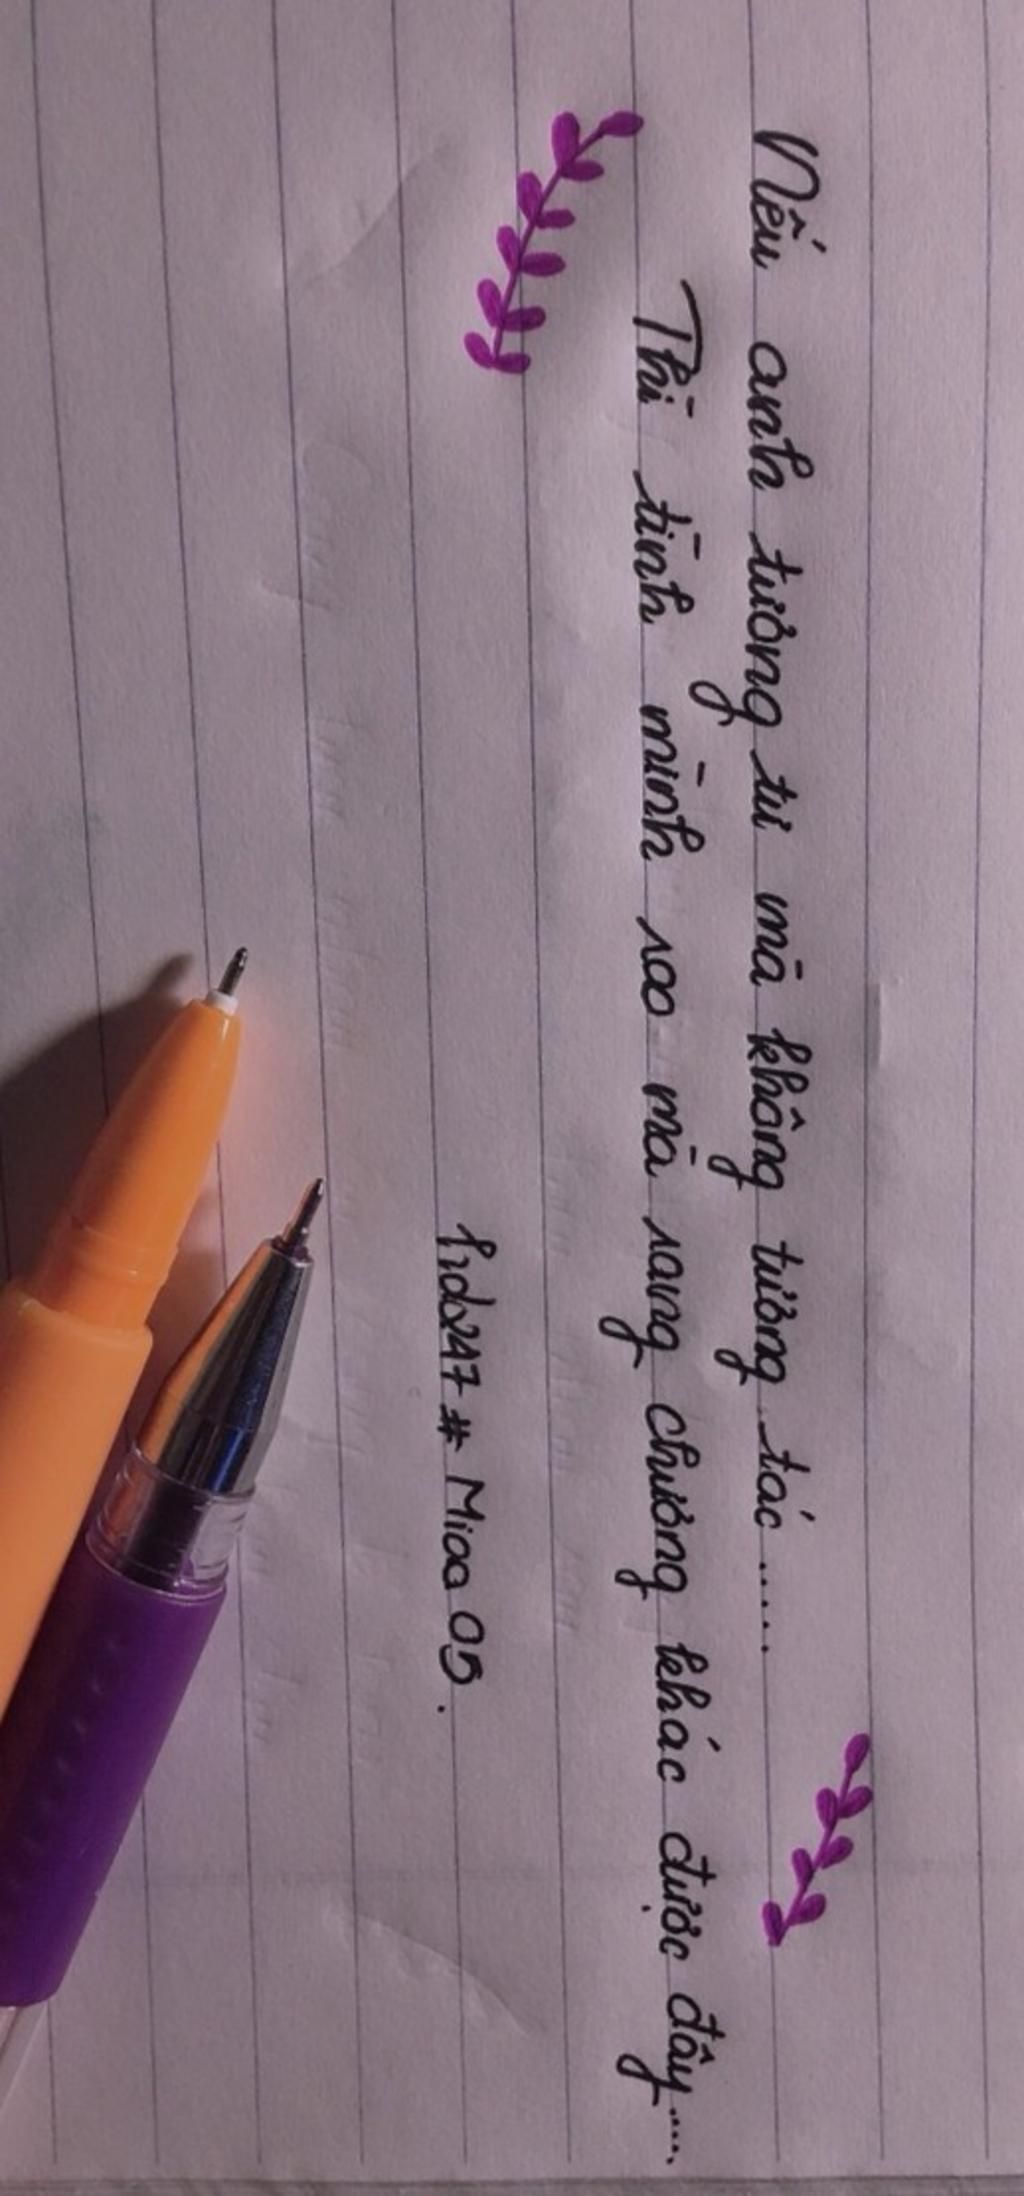 Nếu anh tương tư mà không tương tác......
Thì tình mình sao mà sang chương khác được đây.....
hda247 # Miaa 05.